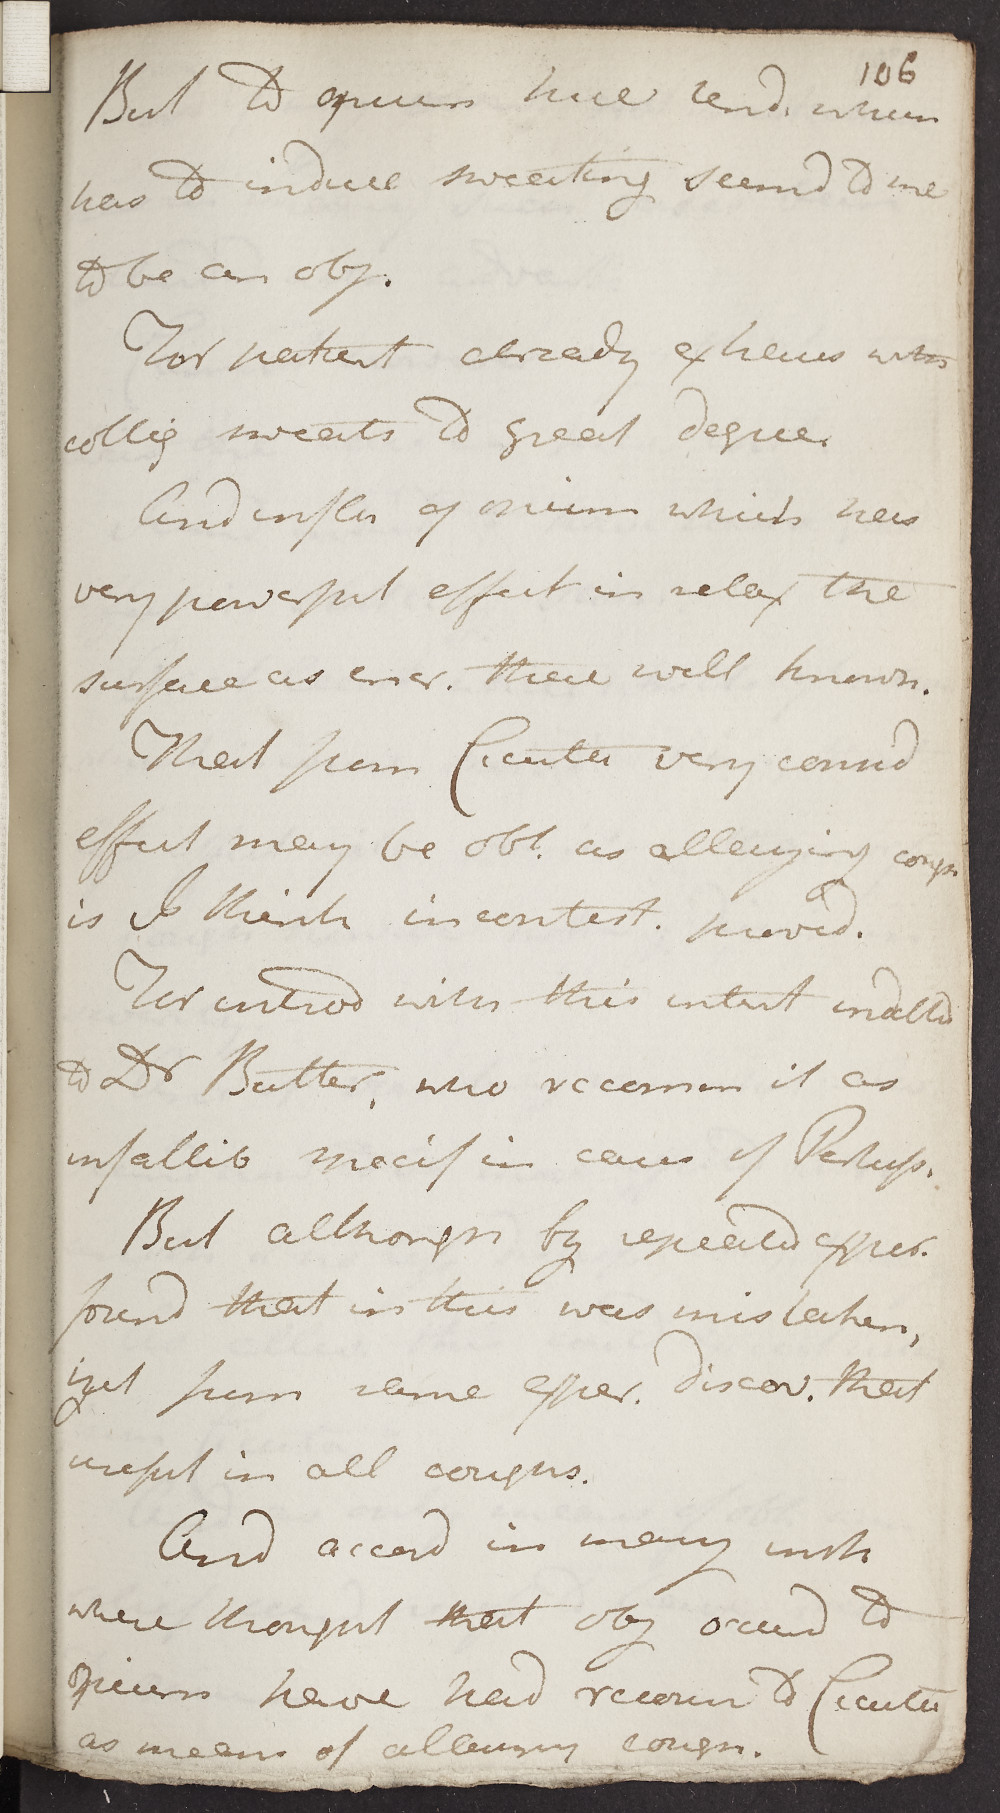 106
But to opium here tend. whch
has to induce sweating seemd to me
to be an obj.
For patient already exhaus with
collig sweats to great degree.
And influ of opium which has
very powerful effect in relax the
surface as exer. there well known.
That from Cicuta very consid
effect may be obt. as allaying cough
is I think incontest. proved.
For introd with this intent indebtd
to Dr Butter, who recomm it as
infallib specif in cases of Pertuss.
But although by repeatd exper.
found that in this was mistaken,
yet from same exper. discov. that
useful in all coughs.
And accord in many inst
where thought that obj occurd to
opium have had recour to Cicuta
as means of allaying cough.